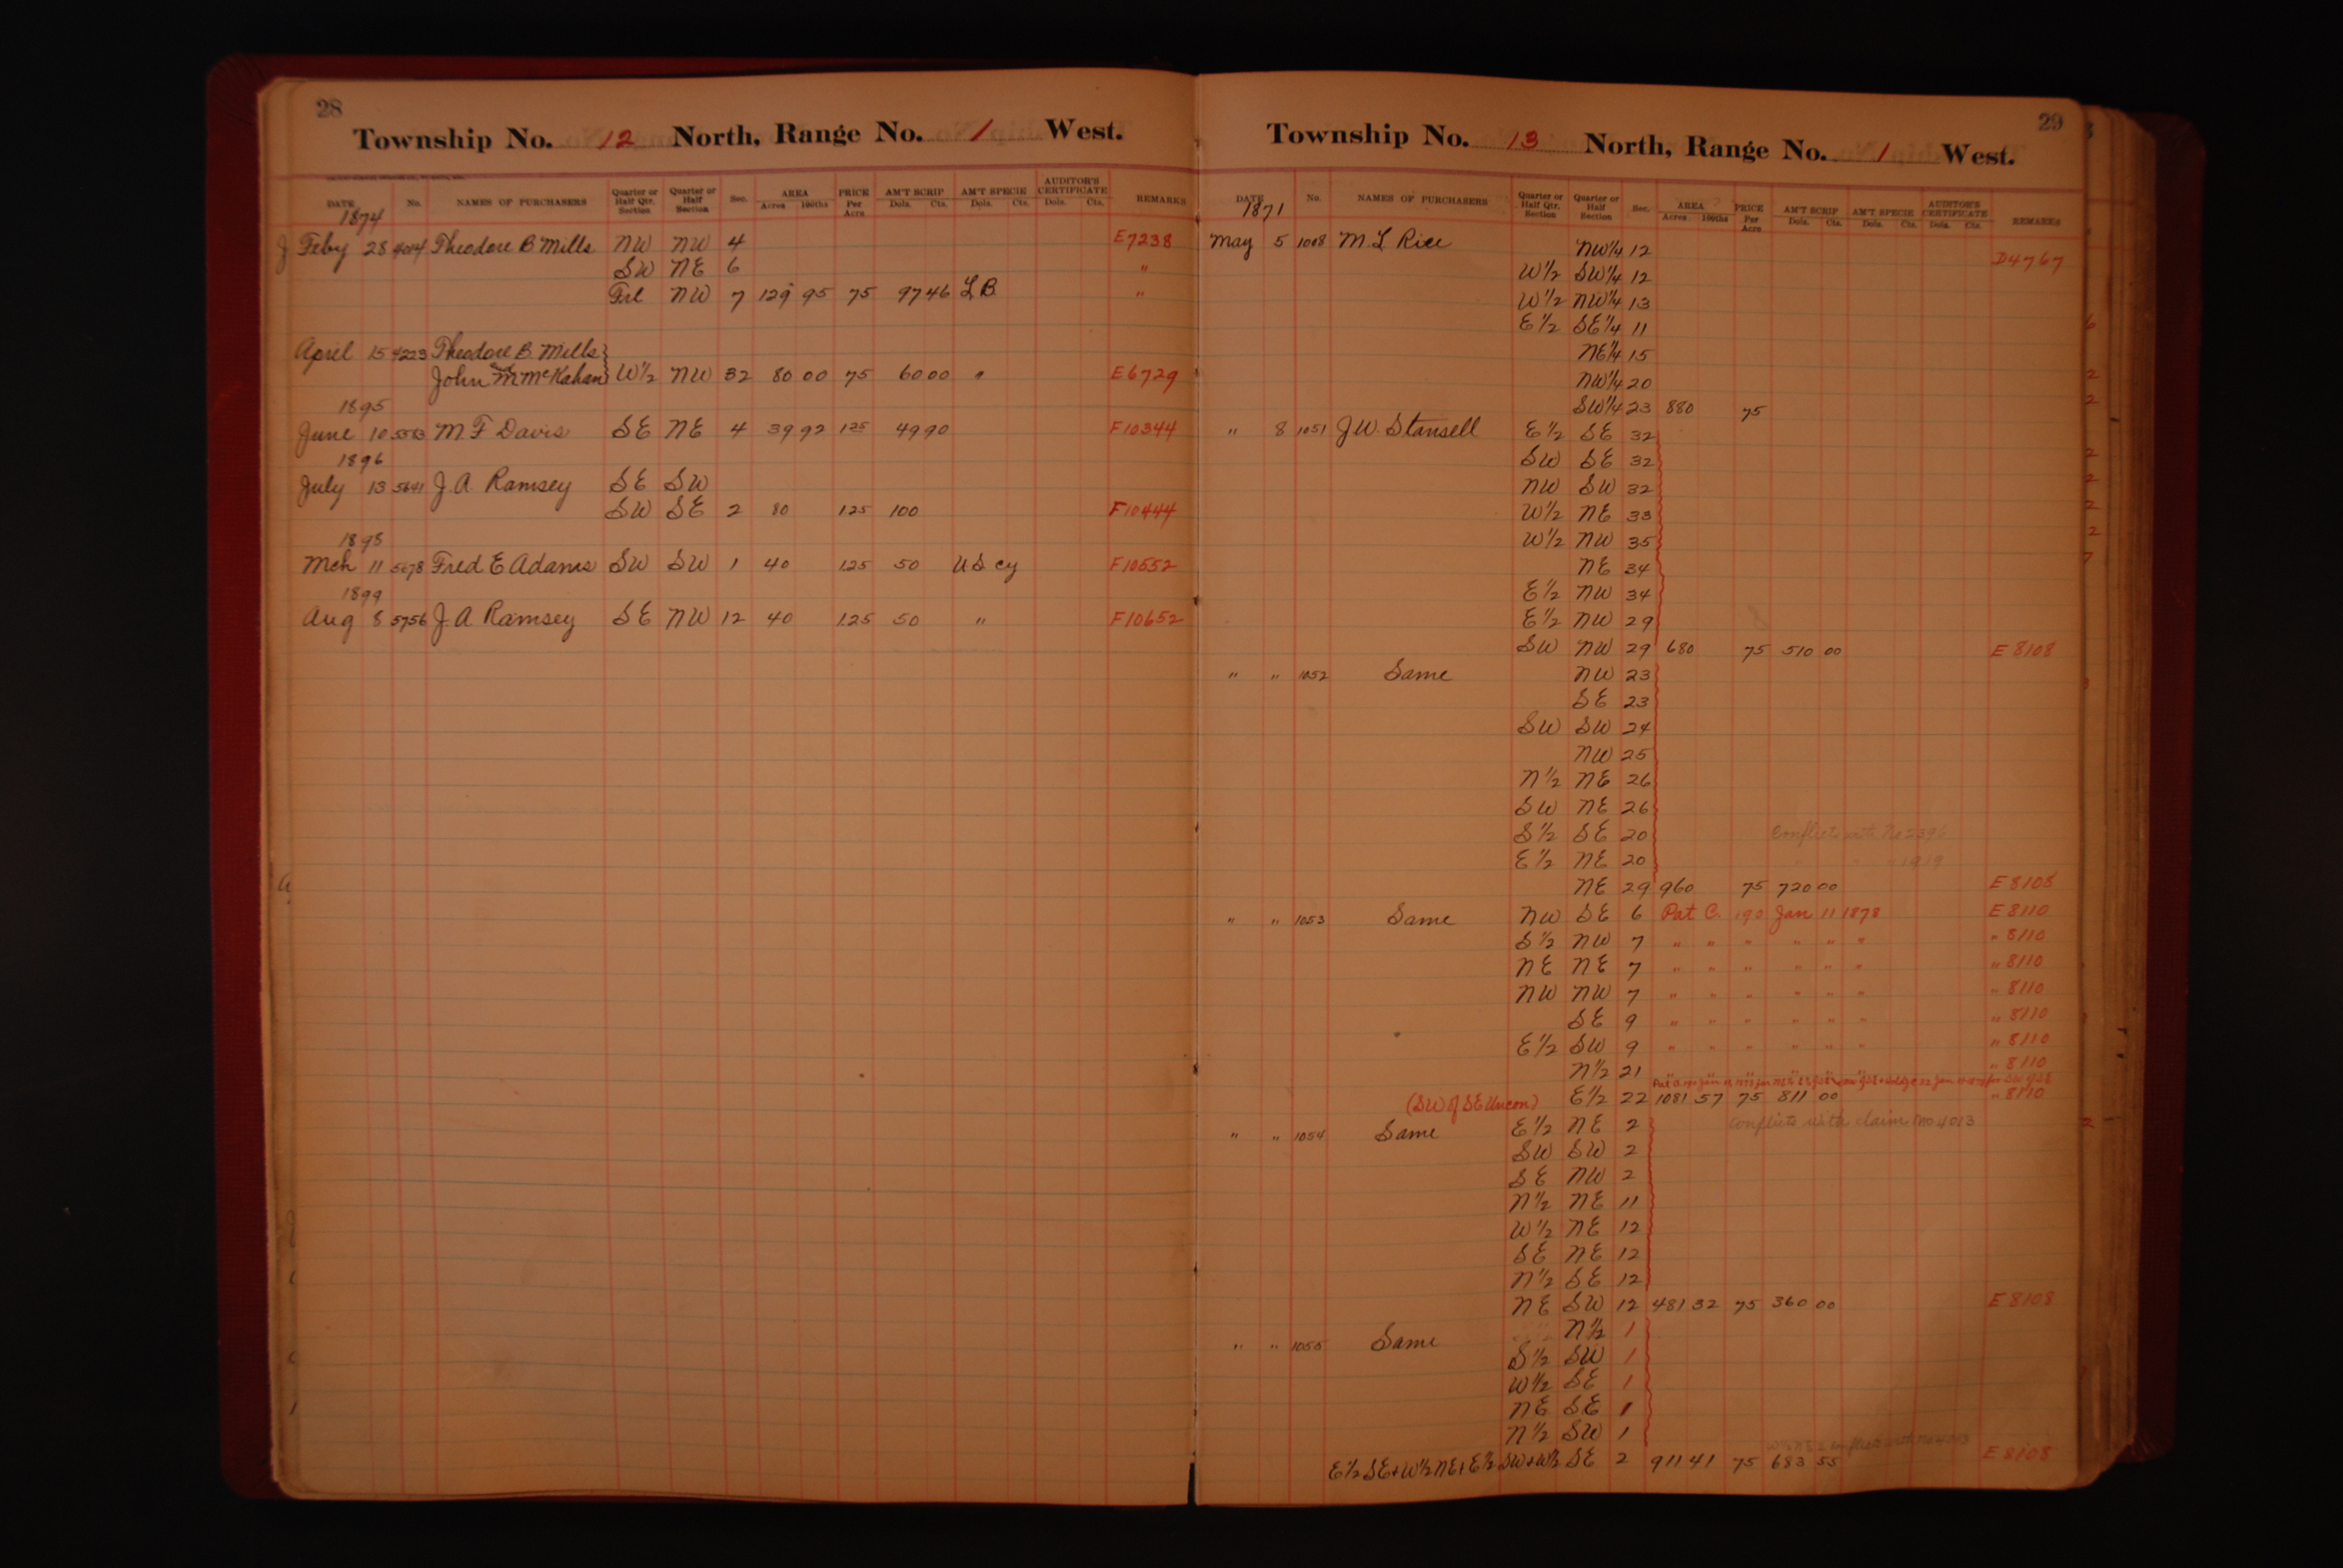 28
Township No. 12 North, Range No. 1 West.
DATE No. NAMES OF PURCHASERS Quarter or Half Qtr. Section Quarter or Half Section Sec. AREA Acres 100ths PRICE Per Acre AM'T SCRIP Dols. Cts. AM'T SPECIE Dols. Cts. AUDITOR'S CERTIFICATE Dols. Cts. REMARKS
1874
Feby 28 4014 Theodore B Mills NW NW 4 E7238
SW NE 6 "
Frl NW 7 129 95 75 97 46 L B "
April 15 4223 Theodore B Mills
John M McKahan W½ NW 32 80 00 75 60 00 " E6729
1895
June 10 M F Davis SE NE 4 39 92 1 25 49 90 F10344
1896
July 13 5641 J. A. Ramsey SE SW
SW SE 2 80 1 25 100 F10444
1898
Mch 11 5678 Fred E Adams SW SW 1 40 1 25 50 U S cy F10552
1899
Aug 8 5756 J. A Ramsey SE NW 12 40 1.25 50 " F10652
29
Township No. 13 North, Range No. 1 West.
DATE No. NAMES OF PURCHASERS Quarter or Half Qtr. Section Quarter or Half Section Sec. AREA Acres 100ths PRICE Per Acre AM'T SCRIP Dols. Cts. AM'T SPECIE Dols. Cts. AUDITOR'S CERTIFICATE Dols. Cts. REMARKS
1871
May 5 1008 M. L Rice NW¼ 12 D4767
W½ SW¼ 12
W½ NW¼ 13
E½ SE¼ 11
NE¼ 15
NW¼ 20
SW¼ 23 880 75
" 8 1051 J W. Stansell E½ SE 32
SW SE 32
NW SW 32
W½ NE 33
W½ NW 35
NE 34
E½ NW 34
E½ NW 29
SW NW 29 680 75 510 00 E 8108
" " 1052 Same NW 23
SE 23
SW SW 24
NW 25
N½ NE 26
SW NE 26
S½ SE 20 Conflicts with No 2396
E½ NE 20 " " " 1919
NE 29 960 75 720 00 E 8108
" " 1053 Same NW SE 6 Pat C. 190 Jan 11 1878 E 8110
S½ NW 7 " " " " " " " 8110
NE NE 7 " " " " " " " 8110
NW NW 7 " " " " " " " 8110
SE 9 " " " " " " " 8110
E½ SW 9 " " " " " " " 8110
N½ 21 " 8110
(SW of SE Uncon) E½ 22 1081 57 75 811 00 " 8110
" " 1054 Same E½ NE 2 Conflicts with claim No 4013
SW SW 2
SE NW 2
N½ NE 11
W½ NE 12
SE NE 12
N½ SE 12
NE SW 12 481 32 75 360 00 E 8108
" " 1055 Same N½ 1
S½ SW 1
W½ SE 1
NE SE 1
N½ SW 1
E½ SE + W½ NE + E½ SW + W½ SE 2 911 41 75 683 55 E 8108